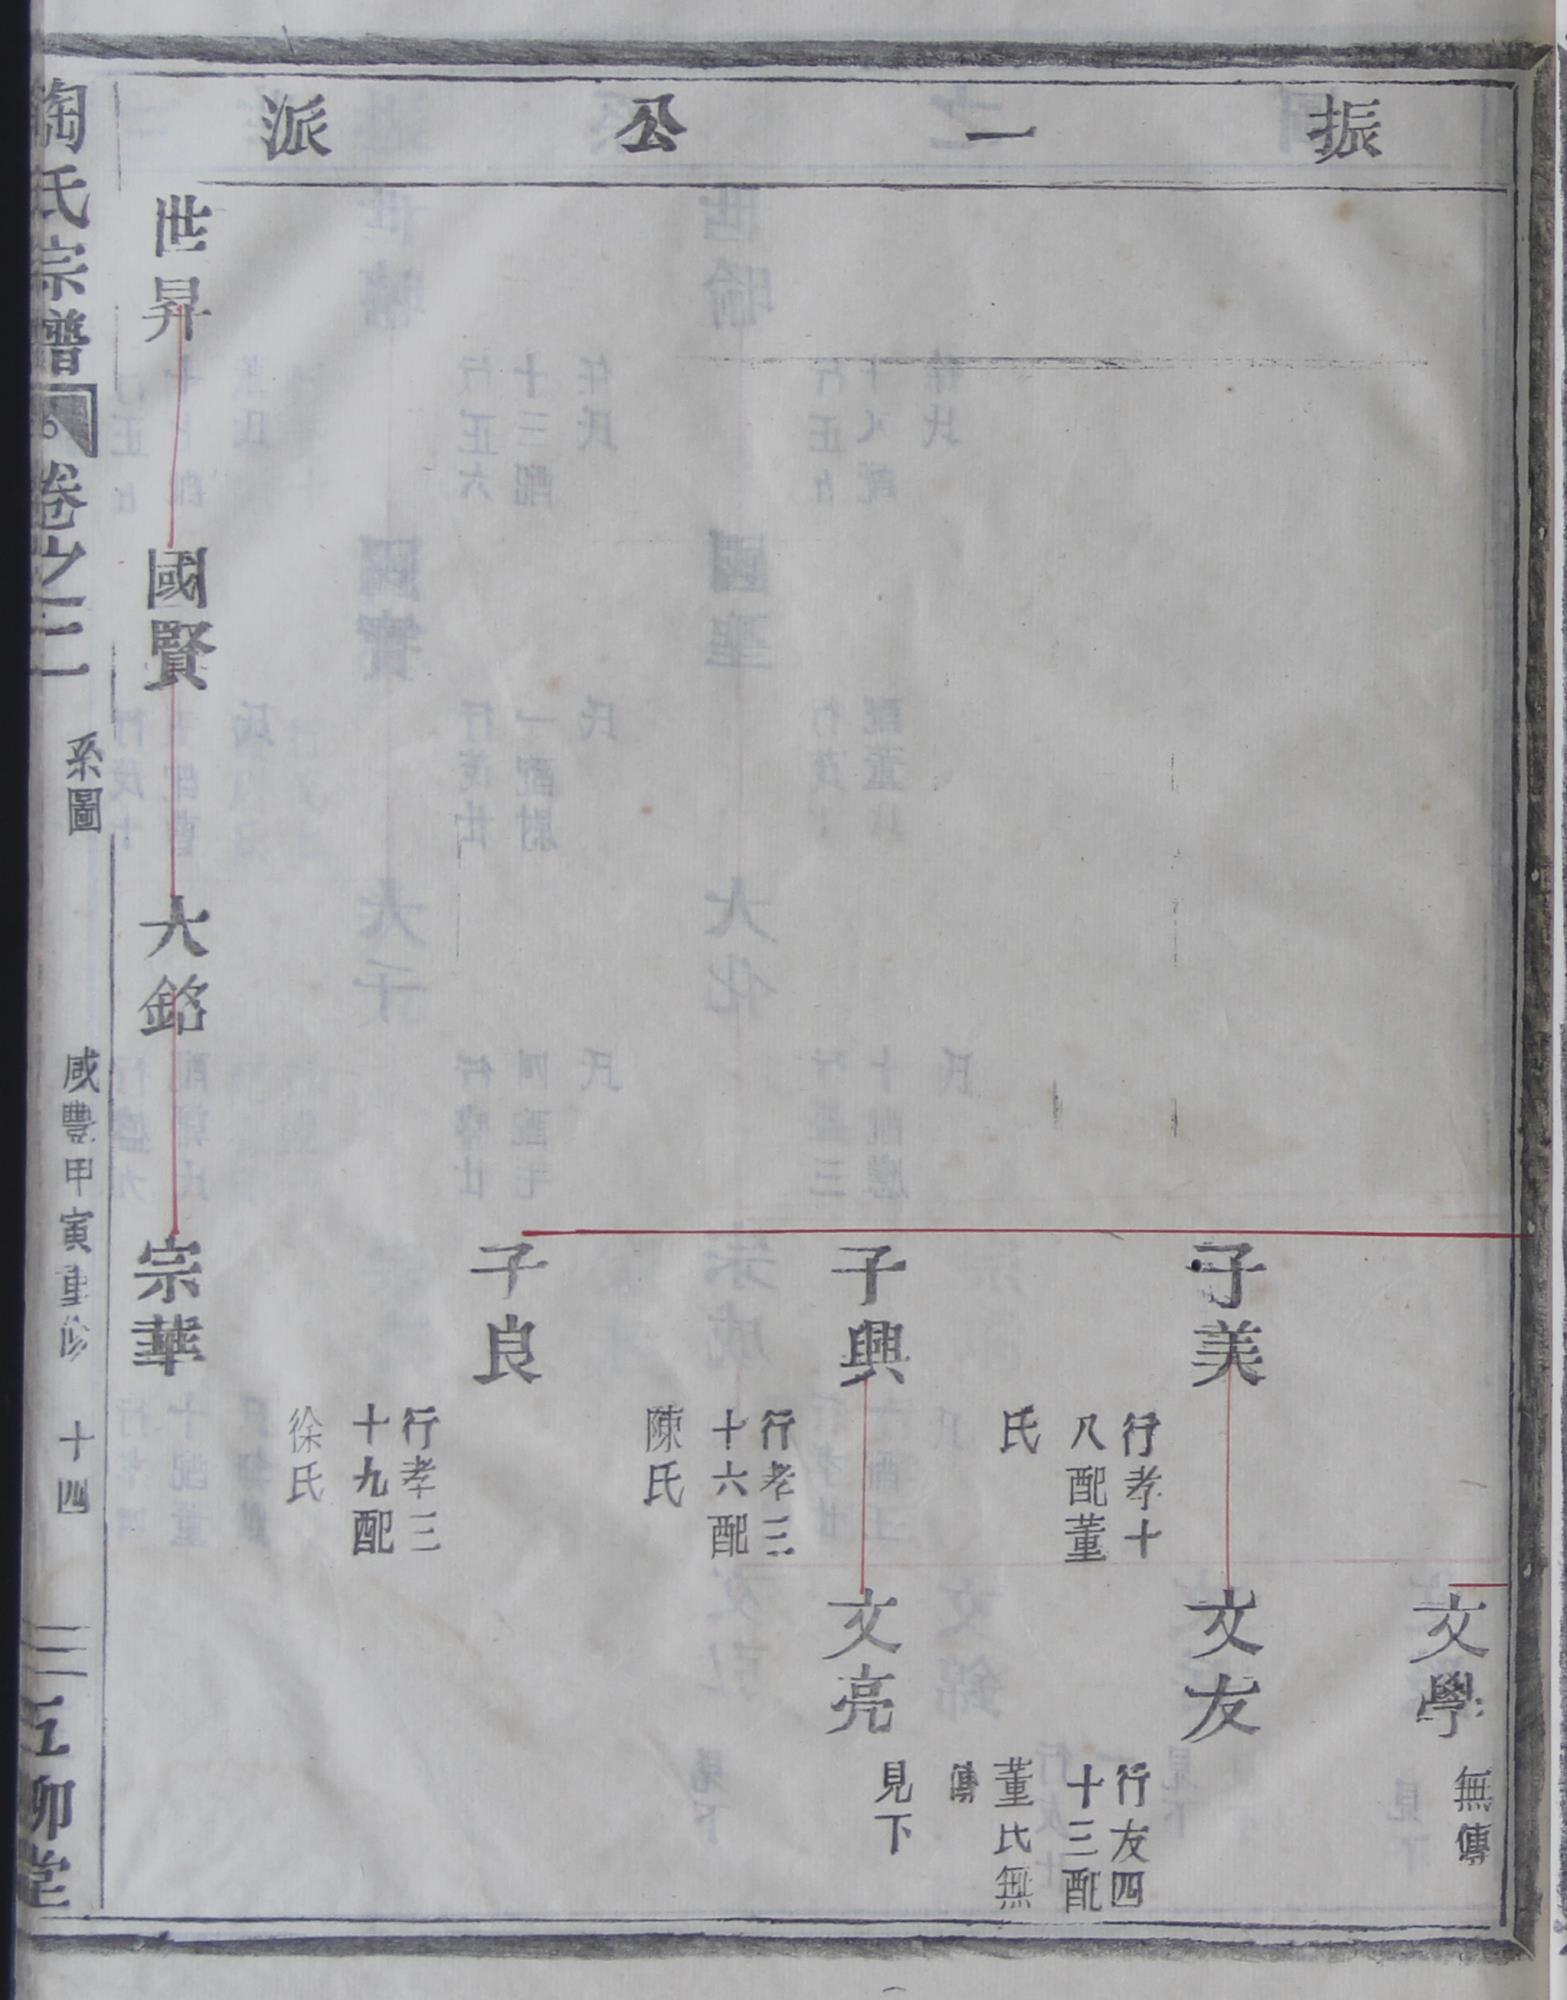 振一公派
文學
無傳
子美
行孝十
八配董
氏
文友
行友四
十三配
董氏無
傳
子興
行孝三
十六配
陳氏
文亮
見下
子良
行孝三
十九配
徐氏
世昇
國賢
大銘
宗華
陶氏宗譜
卷之二
系圖
咸豐甲寅重修
十四
五柳堂